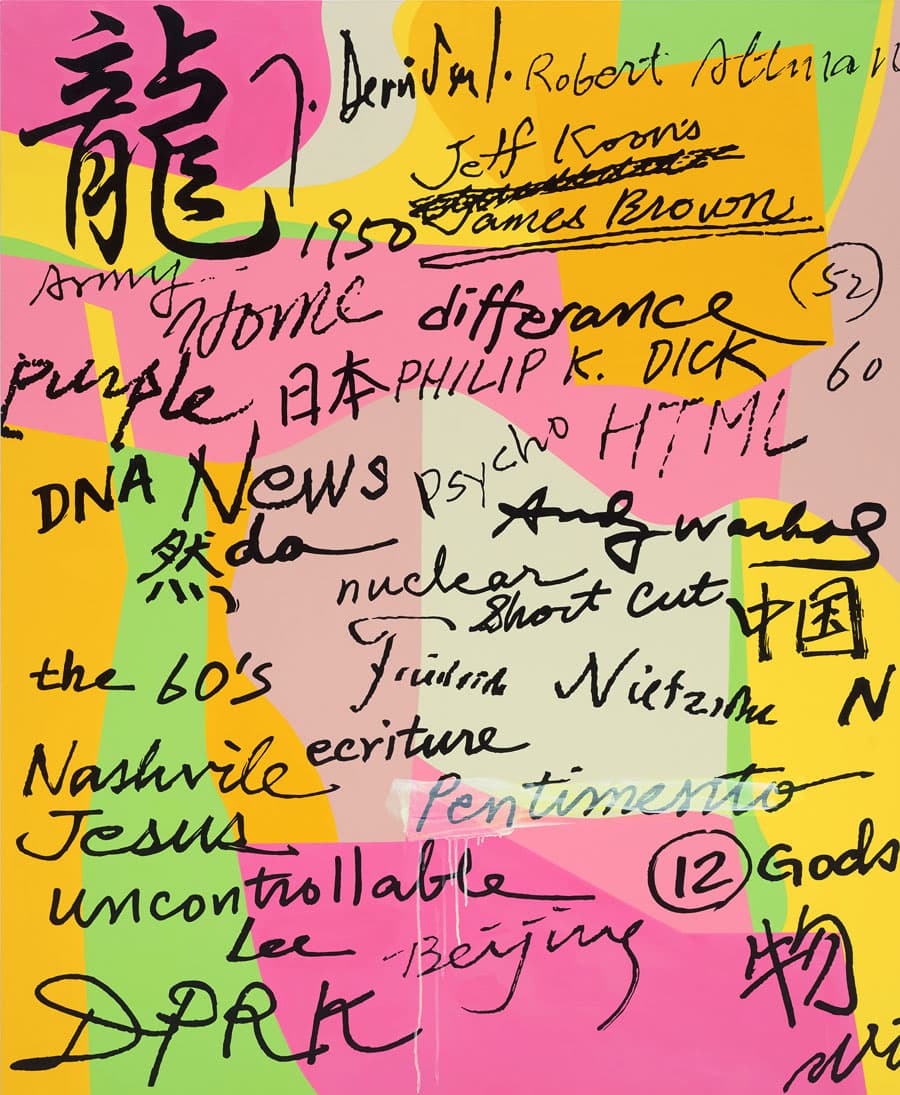 龍 J. Derrida. Robert Altman
Jeff Koons
James Brown
1950
Army Home differance 52
purple 日本 PHILIP K. DICK 60
DNA News psycho HTML
然 da Andy Warhol
nuclear
Short Cut 中国
the 60's Friedrich Nietzsche N
Nashvile ecriture
Pentimento
Jesus
uncontrollable 12 Gods
Lee Beijing 物
DPRK